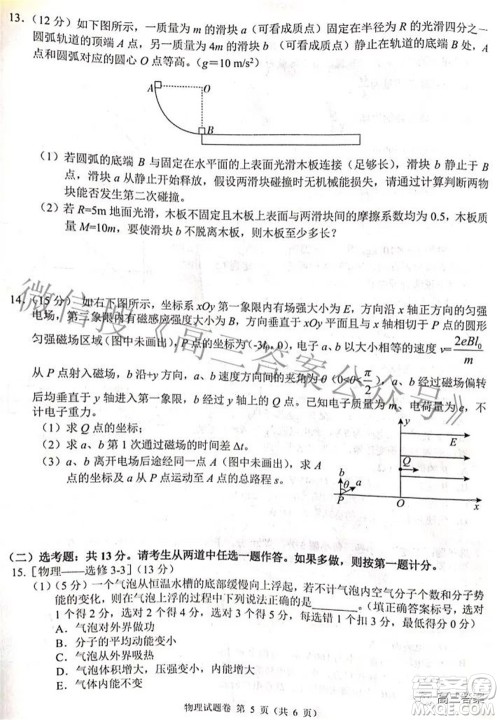 13. (12 分) 如下图所示，一质量为 m 的滑块 a（可看成质点）固定在半径为 R 的光滑四分之一
圆弧轨道的顶端 A 点，另一质量为 4m 的滑块 b （可看成质点）静止在轨道的底端 B 处，A
点和圆弧对应的圆心 O 点等高。（g＝10 m/s²）
A
O
B
（1）若圆弧的底端 B 与固定在水平面的上表面光滑木板连接（足够长），滑块 b 静止于 B
点，滑块 a 从静止开始释放，假设两滑块碰撞时无机械能损失，请通过计算判断两物
块能否发生第二次碰撞。
（2）若 R=5m 地面光滑，木板不固定且木板与两滑块间的摩擦系数均为 0.5，木板质
量 M=10m，要使滑块 b 不脱离木板，则木板至少多长？
14. (15 分) 如右下图所示，坐标系 xOy 第一象限内有场强大小为 E，方向沿 x 轴正方向的匀强
电场，第二象限内有磁感应强度大小为 B，方向垂直于 xOy 平面且与 x 轴相切于 P 点的圆形
匀强磁场区域(图中未画出)，P 点的坐标为(-3l₀，0)，电子 a、b 以大小相等的速度 v=2eBl₀/m
从 P 点射入磁场，b 沿+y 方向，a、b 速度方向的夹角为 θ (0<θ<π/2)，a、b 经过磁场偏转
后均垂直于 y 轴进入第一象限，b 经过 y 轴上的 Q 点。已知电子质量为 m、电荷量为 e，不
计电子重力。
（1）求 Q 点的坐标；
（2）求 a、b 第 1 次通过磁场的时间差 Δt。
（3）a、b 离开电场后途经同一点 A（图中未画出），求 A
点的坐标及 a 从 P 点运动至 A 点的总路程 s。
y
E
Q
b
a
P
O
x
（二）选考题：共 13 分。请考生从两道中任选一题作答。如果多做，则按第一题计分。
15.［物理——选修 3-3］(13 分)
（1）(5 分) 一个气泡从恒温水槽的底部缓慢向上浮起，若不计气泡内空气分子个数和分子势
能的变化，则在气泡上浮的过程中下列说法正确的是________。(填正确答案标号，选对
1 个得 2 分，选对 2 个得 4 分，选对 3 个得 5 分，每选错 1 个扣 3 分，最低得 0 分)
A．气泡对外界做功
B．分子的平均动能变小
C．气泡从外界吸热
D．气泡体积增大，压强变小，内能增大
E．气泡内能不变
物理试题卷 第 5 页（共 6 页）
微信搜《高三答案公众号》
高三答案